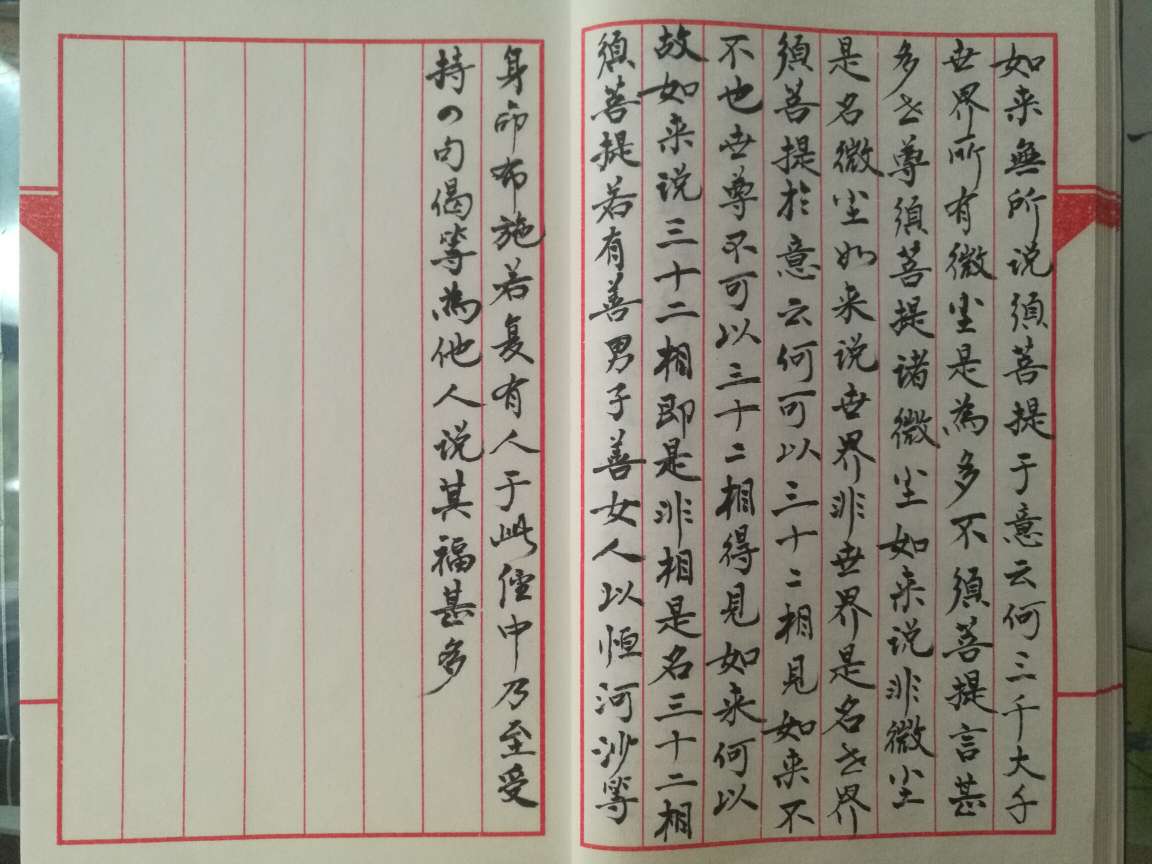 如来無所说須菩提于意云何三千大千
世界所有微尘是為多不須菩提言甚
多世尊須菩提诸微尘如来说非微尘
是名微尘如来说世界非世界是名世界
須菩提於意云何可以三十二相見如来不
不也世尊不可以三十二相得見如来何以
故如来说三十二相即是非相是名三十二相
須菩提若有善男子善女人以恒河沙等
身命布施若复有人于此經中乃至受
持四句偈等為他人说其福甚多